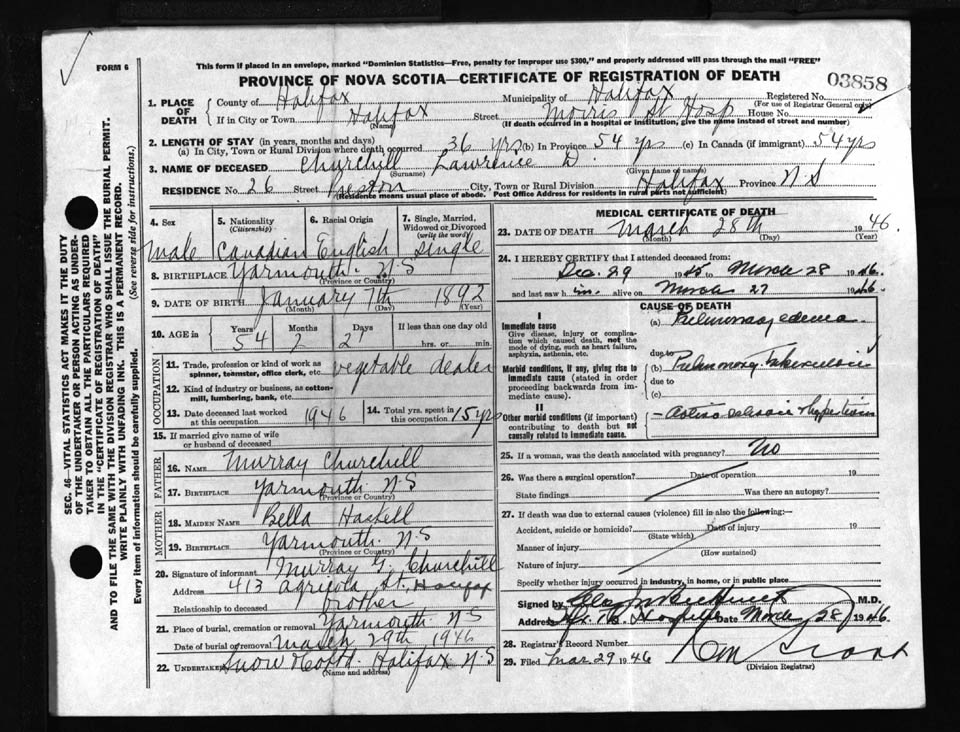 FORM 6
This form if placed in an envelope, marked "Dominion Statistics—Free, penalty for improper use $300," and properly addressed will pass through the mail "FREE"
PROVINCE OF NOVA SCOTIA—CERTIFICATE OF REGISTRATION OF DEATH
03858
1. PLACE OF DEATH
County of Halifax Municipality of Halifax Registered No.
(For use of Registrar General only)
If in City or Town Halifax Street Morris St Hosp House No.
(Name) (If death occurred in a hospital or institution, give the name instead of street and number)
2. LENGTH OF STAY (in years, months and days)
(a) In City, Town or Rural Division where death occurred 36 yrs (b) In Province 54 yrs (c) In Canada (if immigrant) 54 yrs
3. NAME OF DECEASED Churchill Lawrence D.
(Surname) (Given name or names)
RESIDENCE No. 26 Street Preston City, Town or Rural Division Halifax Province N S
(Residence means usual place of abode. Post Office Address for residents in rural parts not sufficient)
4. Sex
male
5. Nationality
(Citizenship)
Canadian
6. Racial Origin
English
7. Single, Married, Widowed or Divorced
(write the word)
single
8. BIRTHPLACE Yarmouth N S
(Province or Country)
9. DATE OF BIRTH January 7th 1892
(Month) (Day) (Year)
10. AGE in Years Months Days If less than one day old
54 2 21 hrs. or min.
OCCUPATION
11. Trade, profession or kind of work as spinner, teamster, office clerk, etc. vegetable dealer
12. Kind of industry or business, as cotton-mill, lumbering, bank, etc.
13. Date deceased last worked at this occupation 1946
14. Total yrs. spent in this occupation 15 yrs
15. If married give name of wife or husband of deceased
FATHER
16. NAME Murray Churchill
17. BIRTHPLACE Yarmouth N S
(Province or Country)
MOTHER
18. MAIDEN NAME Bella Haskell
19. BIRTHPLACE Yarmouth N S
(Province or Country)
20. Signature of informant Murray G. Churchill
Address 413 Agricola St. Halifax
Relationship to deceased brother
21. Place of burial, cremation or removal Yarmouth N S
Date of burial or removal March 29th 1946
22. UNDERTAKER Snow Co Halifax N S
(Name and address)
MEDICAL CERTIFICATE OF DEATH
23. DATE OF DEATH March 28th 1946.
(Month) (Day) (Year)
24. I HEREBY CERTIFY that I attended deceased from:
Dec. 29 1945 to March 28 1946.
and last saw him alive on March 27 1946.
CAUSE OF DEATH
I
Immediate cause
Give disease, injury or complication which caused death, not the mode of dying, such as heart failure, asphyxia, asthenia, etc.
(a) Pulmonary edema
due to
Morbid conditions, if any, giving rise to immediate cause (stated in order proceeding backwards from immediate cause).
(b) Pulmonary Tuberculosis
due to
(c)
II
Other morbid conditions (if important) contributing to death but not causally related to immediate cause.
25. If a woman, was the death associated with pregnancy? No
26. Was there a surgical operation? Date of operation 19
State findings Was there an autopsy?
27. If death was due to external causes (violence) fill in also the following:—
Accident, suicide or homicide? Date of injury 19
(State which)
Manner of injury
(How sustained)
Nature of injury
Specify whether injury occurred in industry, in home, or in public place
Signed by M.D.
Address Hospital Date March 28 1946.
28. Registrar's Record Number
29. Filed Mar. 29 1946
(Division Registrar)
SEC. 46—VITAL STATISTICS ACT MAKES IT THE DUTY
OF THE UNDERTAKER OR PERSON ACTING AS UNDER-
TAKER TO OBTAIN ALL THE PARTICULARS REQUIRED
IN THE "CERTIFICATE OF REGISTRATION OF DEATH"
AND TO FILE THE SAME WITH THE DIVISION REGISTRAR WHO SHALL ISSUE THE BURIAL PERMIT.
WRITE PLAINLY WITH UNFADING INK. THIS IS A PERMANENT RECORD.
Every item of information should be carefully supplied. (See reverse side for instructions.)